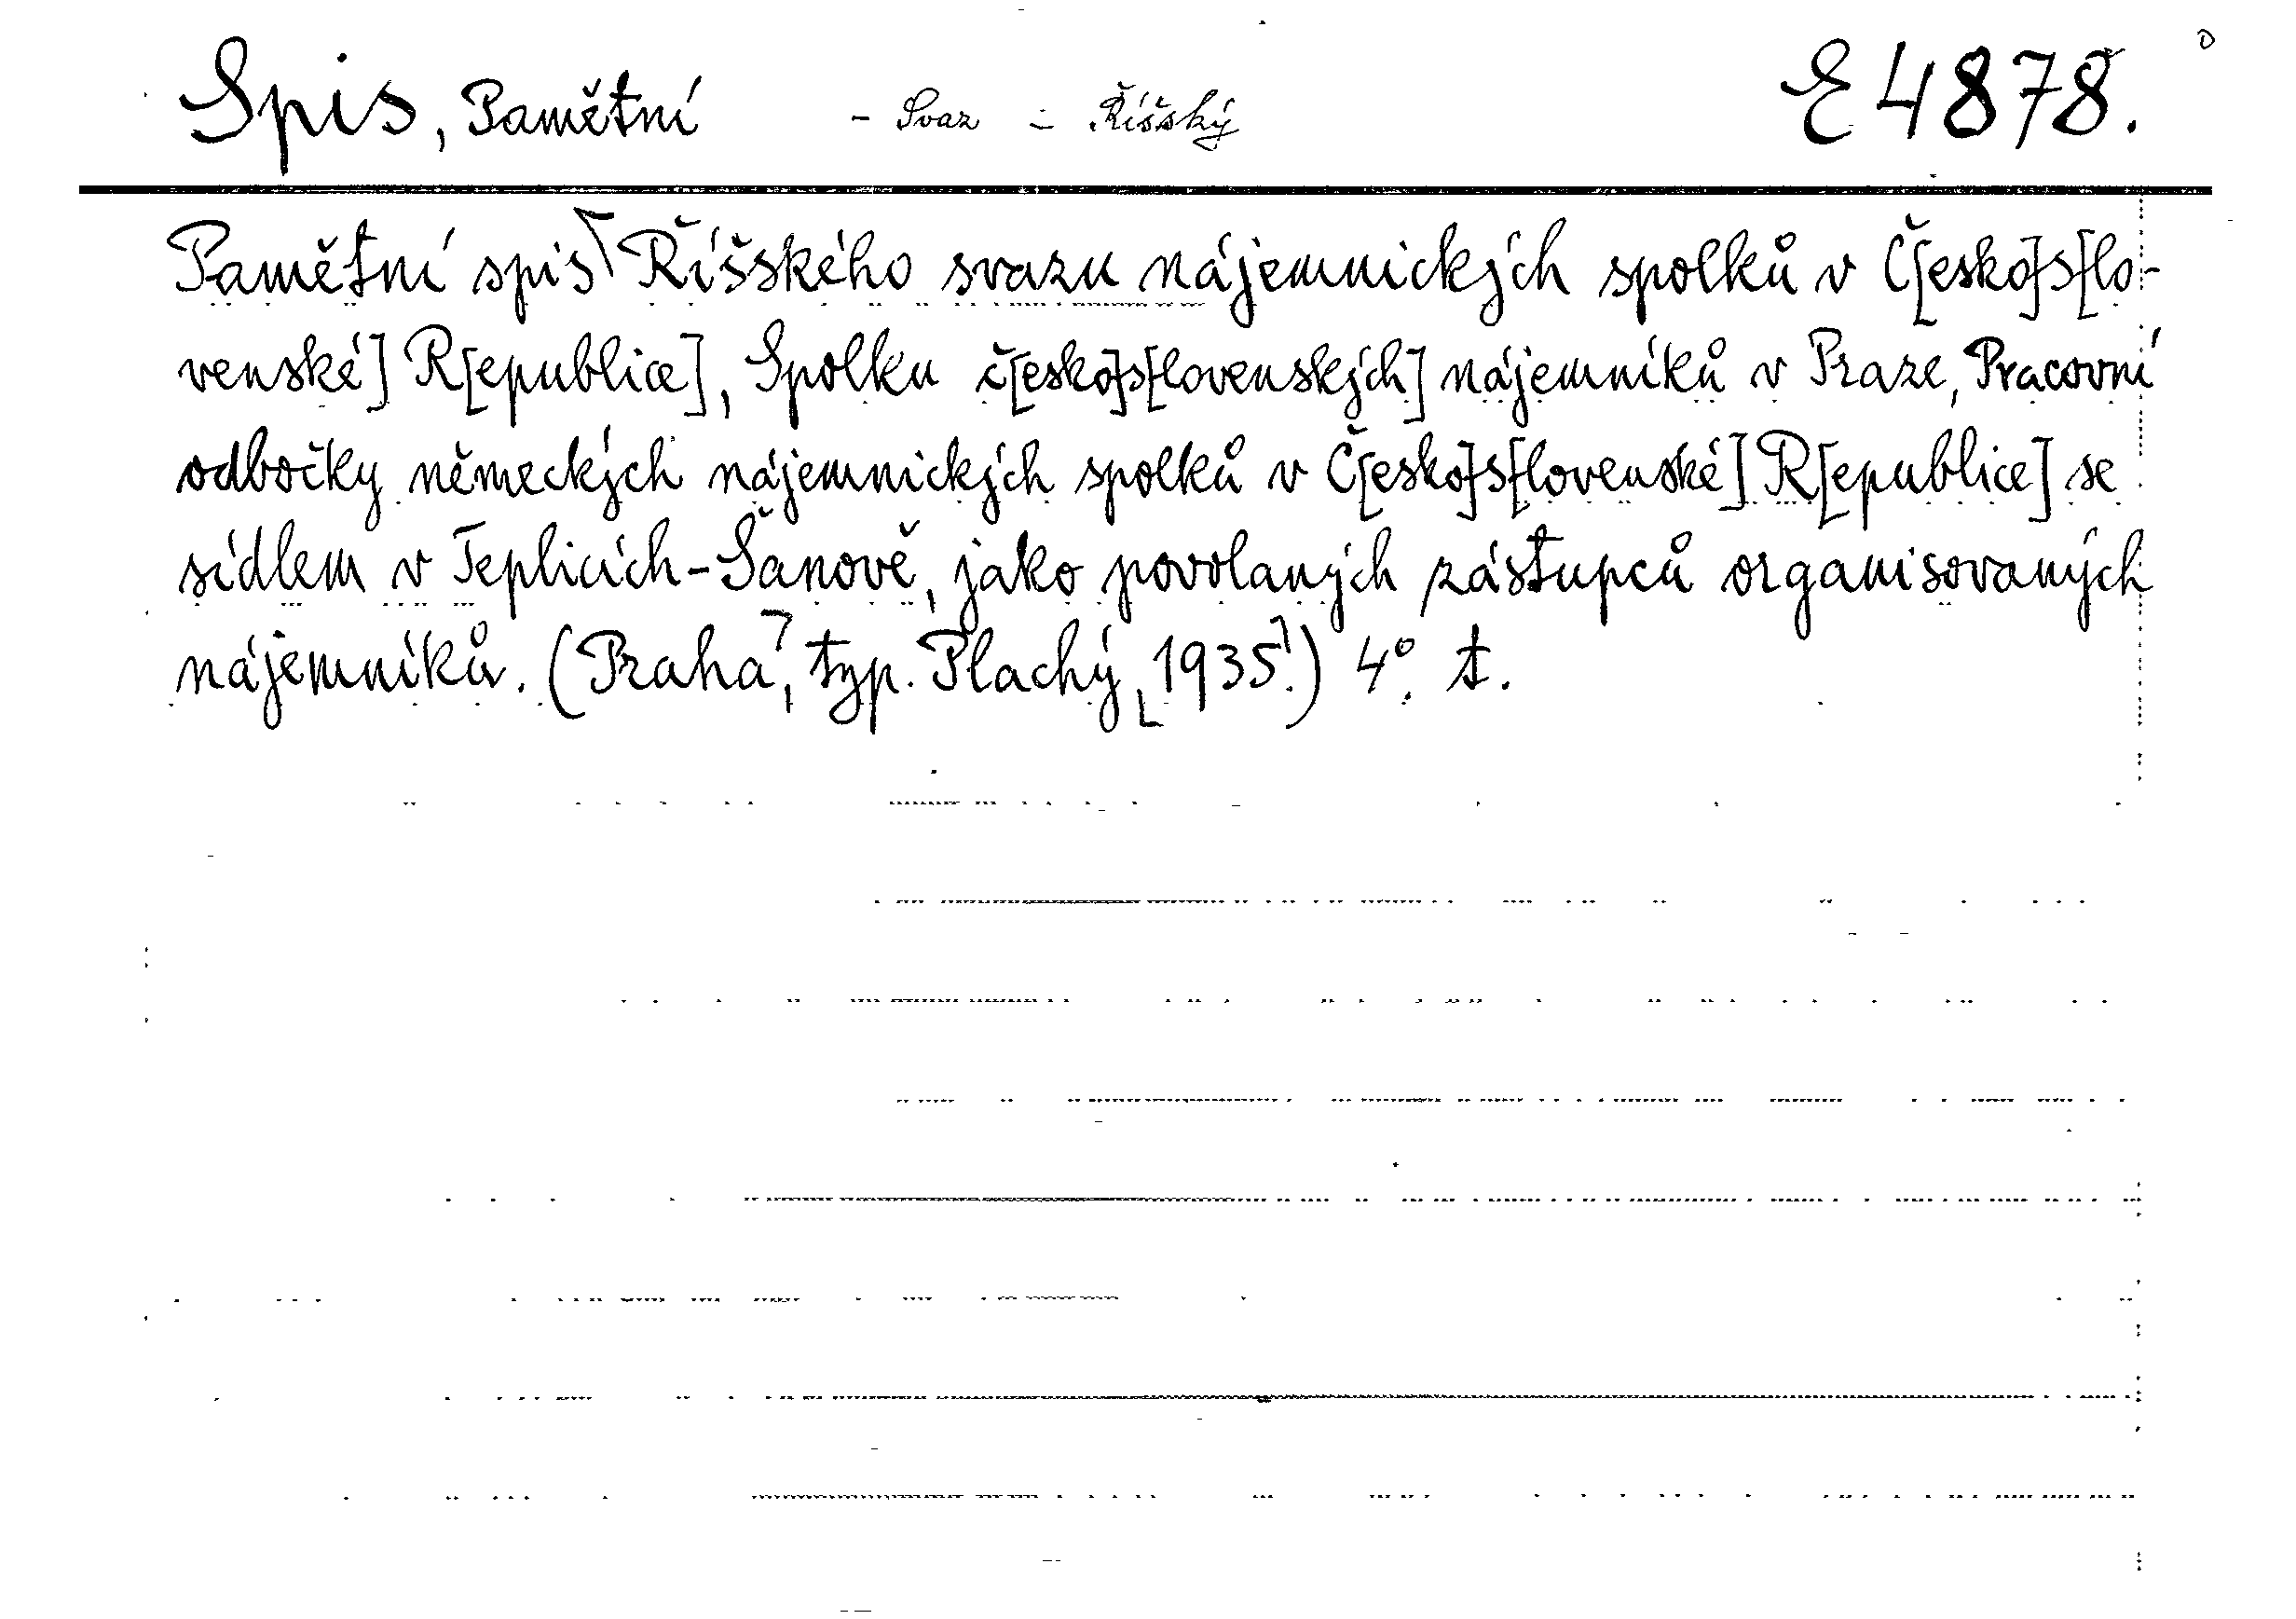 Spis, Pamětní - Svaz - Říšský E 4878.
Pamětní spis Říšského svazu nájemnických spolků v Č[esko]s[lo-
venské] R[epublice], Spolku č[esko]s[lovenských] nájemníků v Praze, Pracovní
odbočky německých nájemnických spolků v Č[esko]s[lovenské] R[epublice] se
sídlem v Teplicích-Šanově, jako povolaných zástupců organisovaných
nájemníků. (Praha], typ. Plachý, [1935].) 4°. t.